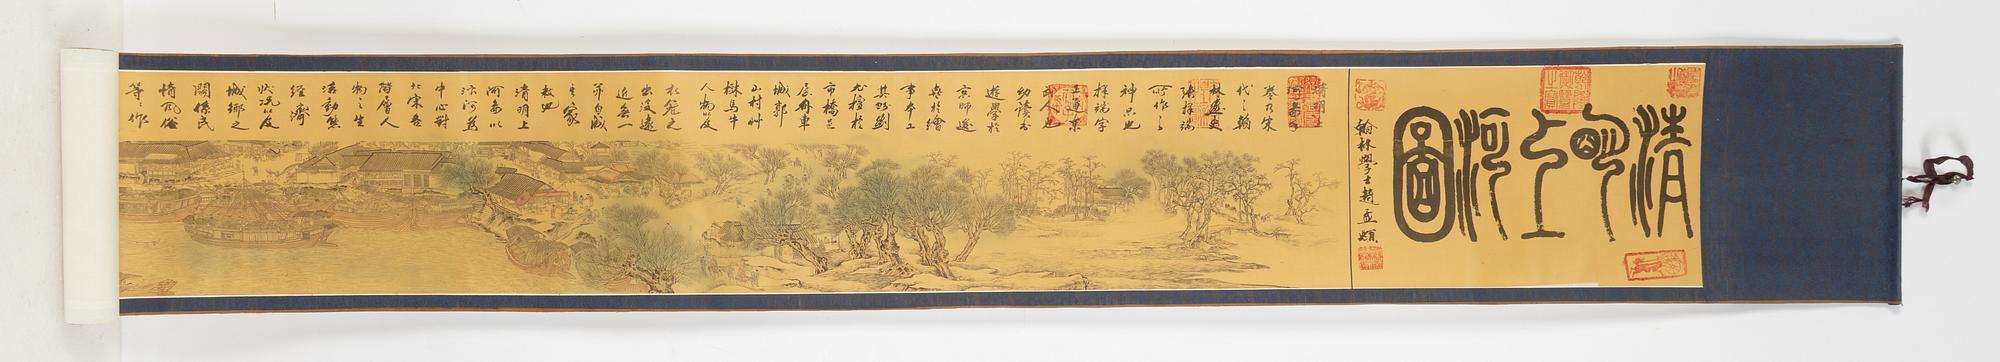 清明上河圖
翰林學士趙孟頫
清明上
卷乃宋
代之翰
林畫史
張擇端
所作之
神品也
擇端字
正道東
武人也
幼讀書
遊學於
京師遂
長於繪
事本工
其界劃
尤檀於
市橋
車
城郭
山村艸
樹馬牛
人物以及
衣冠之
出沒遠
近無一
自成
家
數也
清明上
河畫以
汴河為
中心對
北宋各
階層人
物之生
活動態
經濟
狀況以及
城鄉之
關係民
情風俗
等之作